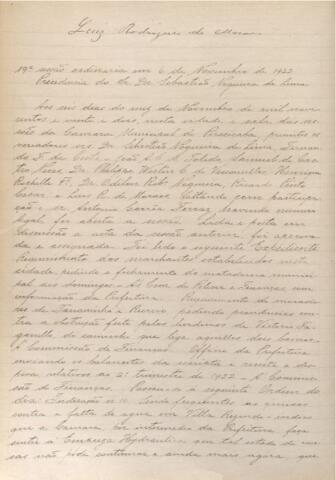 Luiz Rodrigues de Moraes
19ª sessão ordinaria em 6 de Novembro de 1922
Presidencia do Sr. Dr. Sebastião Nogueira de Lima
Aos seis dias do mez de Novembro de mil nove
centos e vinte e dois, nesta cidade e sala das ses
sões da Camara Municipal de Piracicaba, presentes os
vereadores srs. Dr. Sebastião Nogueira de Lima, Fernan
do F. da Costa, João A. de Toledo, Samuel de Cas
tro Neves, Dr. Philippe Westin C. de Vasconcellos, Henrique
Rochelle Fº, Dr. Odilon Rib. Nogueira, Ricardo Pinto
Cesar e Luiz R. de Moraes, faltando com participa
ção sr. Antonio Corrêa Ferraz, havendo numero
legal foi aberta a sessão. Lida e posta em
discussão a acta da sessão anterior foi approva
da e assignada. Foi lido o seguinte Expediente
Requerimento dos marchantes estabelecidos nesta
cidade, pedindo o fechamento do matadouro munici
pal aos domingos. Ás Com. de Policia e Finanças com
informação da Prefeitura. Requerimento de morado
res de Tanquinho e Recreio pedindo providencias con
tra a obstrução feita pelos herdeiros de Victorio Fa
ganello do caminho que liga aquelles dois bairros.
Á Commissão de Finanças. Officio da Prefeitura
enviando os balancetes da receita e despe
sa relativos ao 2º trimestre de 1922 - Á Commis
são de Finanças. Passou-se á seguinte Ordem do
dia: Indicação n. 10. Sendo frequentes as queixas
contra a falta de agua em Villa Rezende, indico
que a Camara, por intermedio da Prefeitura faça
sentir á Empreza Hydraulica que tal estado de cou
sas não pode continuar e ainda mais agora, que